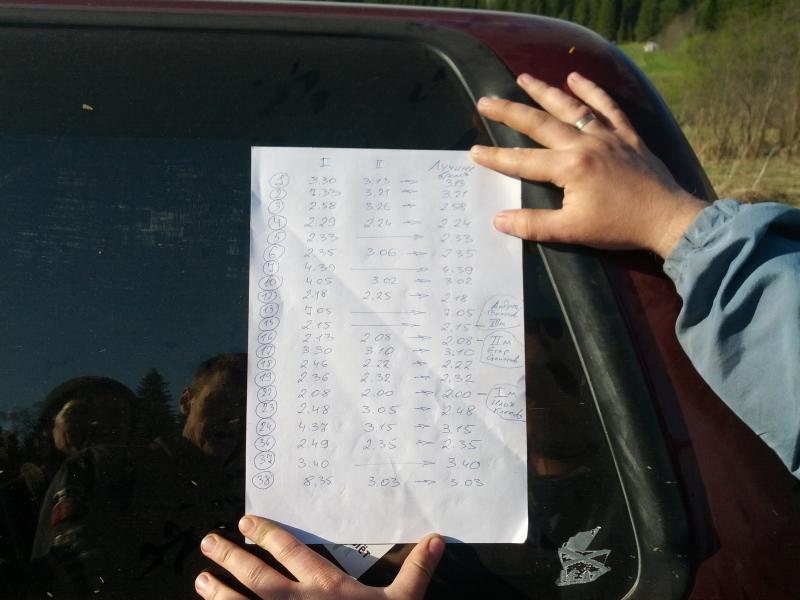 I II Лучшее время
1 3.30 3.13 → 3.13
2 7.33 3.21 → 3.21
3 2.58 3.26 → 2.58
4 2.29 2.24 → 2.24
5 2.33 → 2.33
6 2.35 3.06 → 2.35
4.39 → 4.39
10 4.05 3.02 → 3.02
12 2.18 2.25 → 2.18
13 7.05 → 7.05
15 2.15 → 2.15 – IIIм
16 2.13 2.08 → 2.08 – IIм Егор
17 3.30 3.10 → 3.10
18 2.46 2.22 → 2.22
19 2.36 2.32 → 2.32
22 2.08 2.00 → 2.00 – Iм
23 2.48 3.05 → 2.48
24 4.37 3.15 → 3.15
36 2.49 2.35 → 2.35
37 3.40 → 3.40
38 8.35 3.03 → 3.03